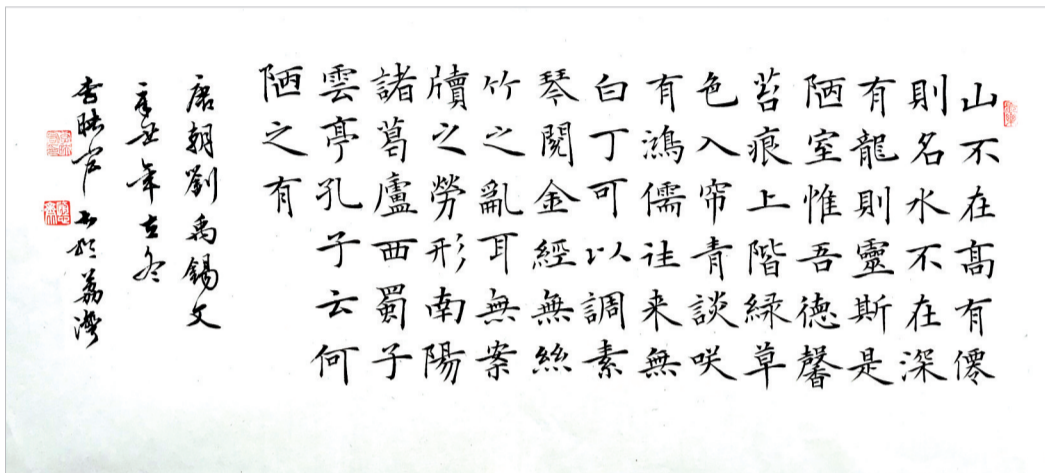 山不在髙有僊
則名水不在深
有龍則靈斯是
陋室惟吾德馨
苔痕上階緑草
色入帘青談咲
有鴻儒往来無
白丁可以調素
琴閱金經無絲
竹之亂耳無案
牘之勞形南陽
諸葛廬西蜀子
雲亭孔子云何
陋之有
唐朝劉禹錫文
辛丑年立冬
李 书於荔灣